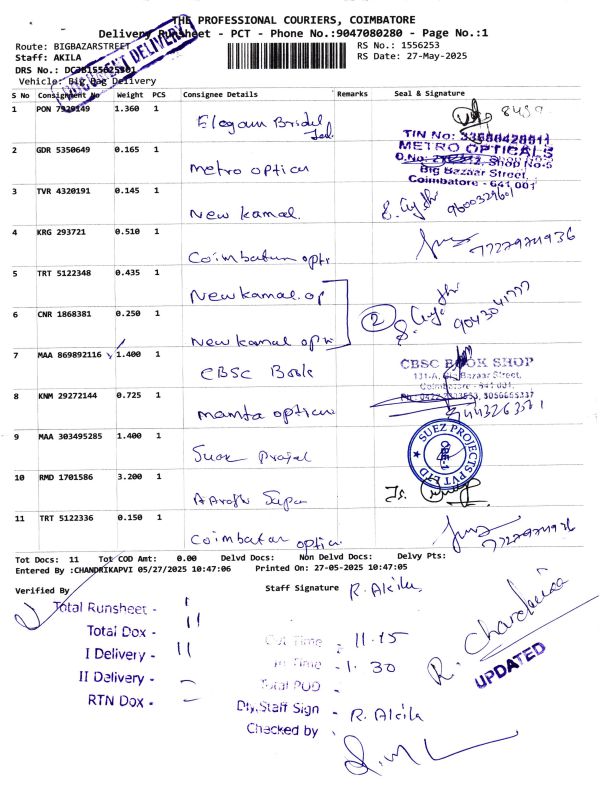 THE PROFESSIONAL COURIERS, COIMBATORE
Delivery Runsheet - PCT - Phone No.:9047080280 - Page No.:1
Route: BIGBAZARSTREET
RS No.: 1556253
Staff: AKILA
RS Date: 27-May-2025
DRS No.:
DOCUMENT DELIVERY
Vehicle: Big Bag Delivery
S No Consignment No Weight PCS Consignee Details Remarks Seal & Signature
1 PON 7929149 1.360 1 Elegam Bridal
8439
TIN No: 33680428911
METRO OPTICALS
Shop No-5
Big Bazaar Street,
Coimbatore - 641 001
2 GDR 5350649 0.165 1 metro optical
3 TVR 4320191 0.145 1 New kamal.
9600329601
4 KRG 293721 0.510 1 Coimbatore opti
7727974936
5 TRT 5122348 0.435 1 New kamal. op
6 CNR 1868381 0.250 1 New kamal opti
2
9043041777
7 MAA 869892116 1.400 1 CBSC Book
CBSC BOOK SHOP
131-A, Big Bazaar Street,
Coimbatore - 641 001,
8 KNM 29272144 0.725 1 mamta optical
9 MAA 303495285 1.400 1 Suez Projet
SUEZ PROJECTS PVT LTD
CBE-1
10 RMD 1701586 3.200 1
11 TRT 5122336 0.150 1 Coimbatore optical
Tot Docs: 11 Tot COD Amt: 0.00 Delvd Docs: Non Delvd Docs: Delvy Pts:
Entered By :CHANDRIKAPVI 05/27/2025 10:47:06 Printed On: 27-05-2025 10:47:05
Verified By
Staff Signature R. Akila
Total Runsheet - 1
Total Dox - 11
I Delivery - 11
II Delivery - -
RTN Dox - -
Out Time - 11.15
In Time - 1.30
Total POD -
Dly.Staff Sign - R. Akila
Checked by
R. Chandrika
UPDATED